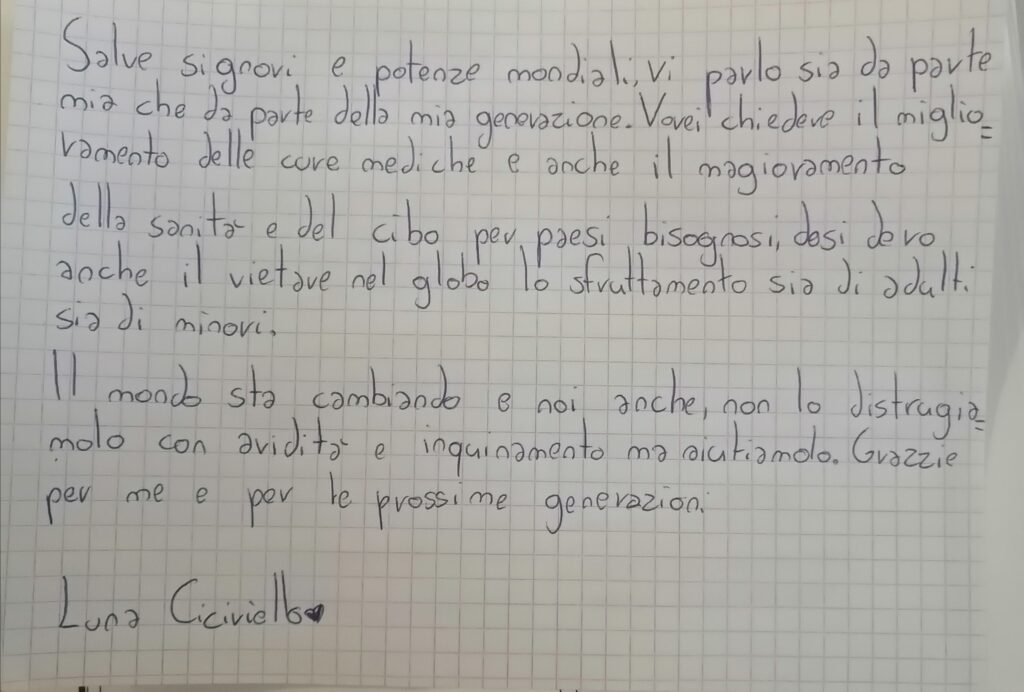 Salve signori e potenze mondiali, vi parlo sia da parte
mia che da parte della mia generazione. Vorei chiedere il miglio=
ramento delle cure mediche e anche il magioramento
della sanità e del cibo per paesi bisognosi, desi de ro
anche il vietare nel globo lo sfruttamento sia di adulti
sia di minori.
Il mondo sta cambiando e noi anche, non lo distragia=
molo con avidità e inquinamento ma aiutiamolo. Grazzie
per me e per le prossime generazioni
Luna Ciciriello